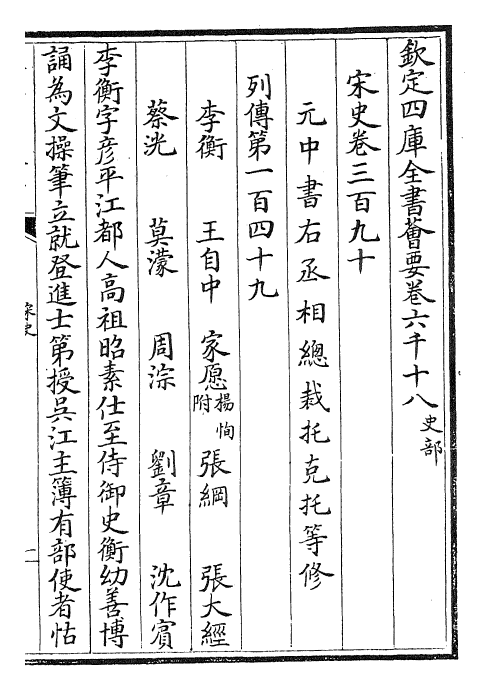 欽定四庫全書薈要卷六千十八 史部
宋史卷三百九十
元中書右丞相總裁托克托等修
列傳第一百四十九
李衡 王自中 家愿 楊恂附 張綱 張大經
蔡洸 莫濛 周淙 劉章 沈作賓
李衡字彦平江都人高祖昭素仕至侍御史衡幼善博
誦為文操筆立就登進士第授吳江主簿有部使者怙
宋史
一